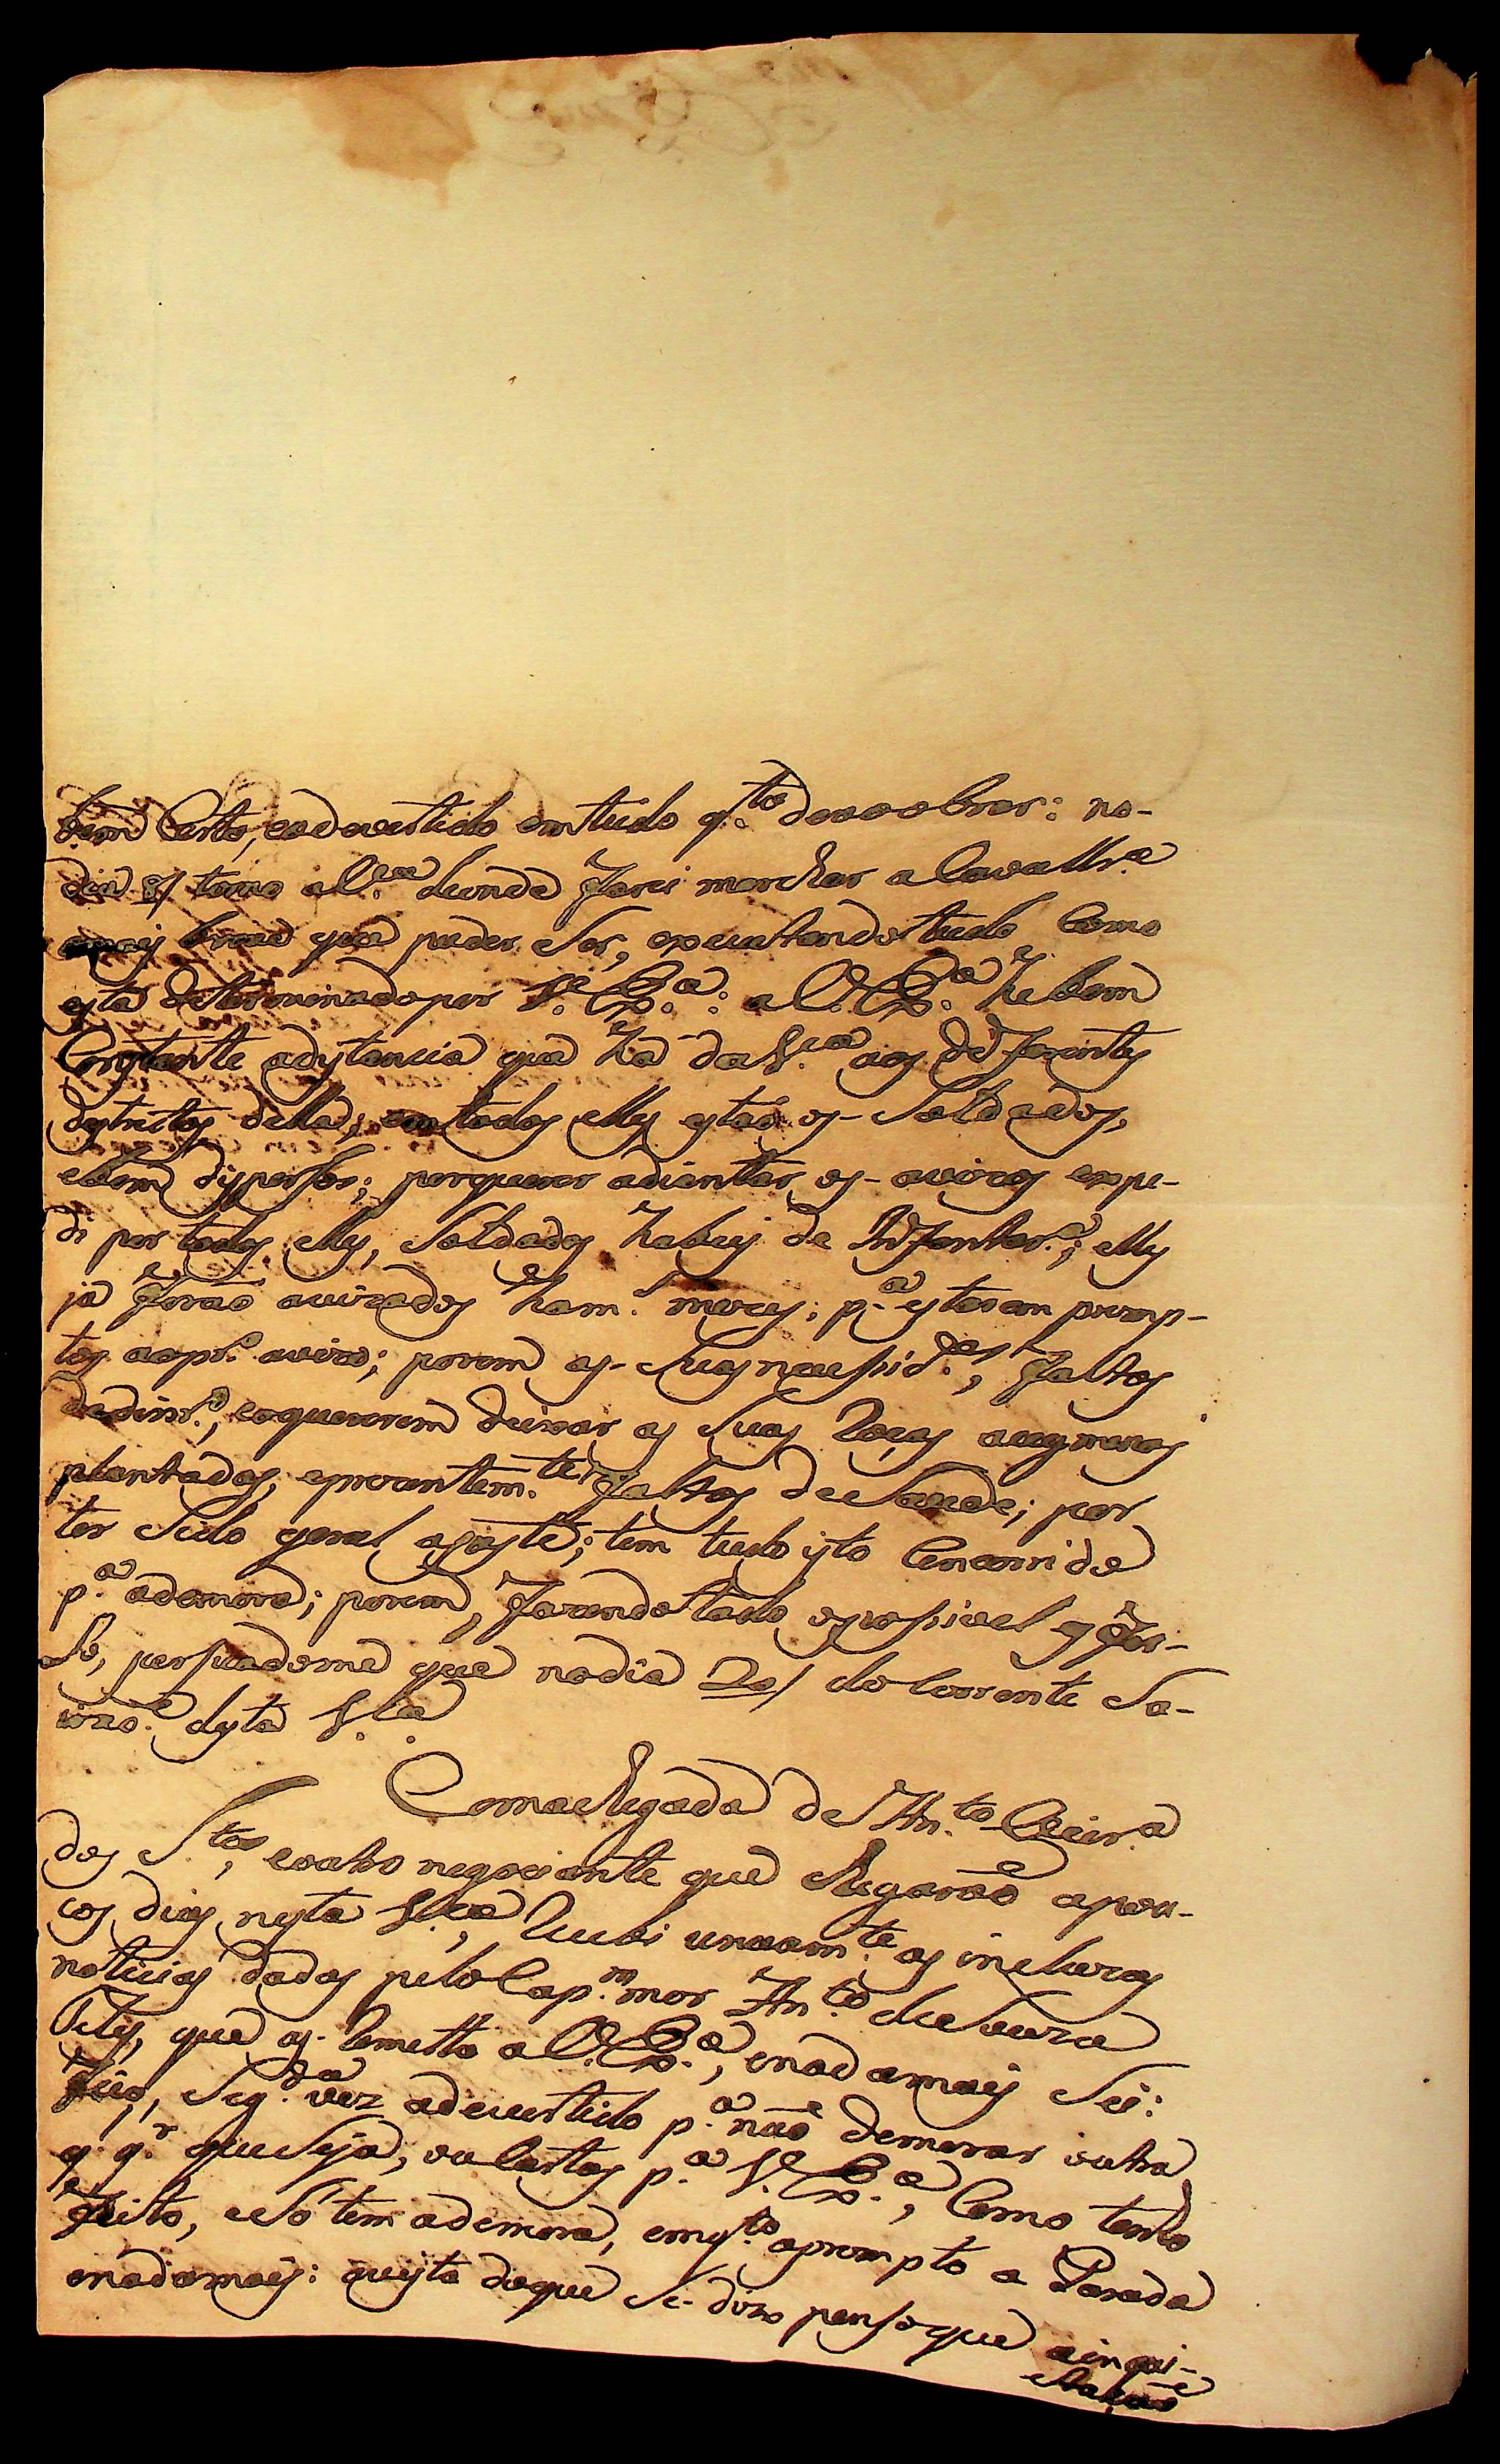 bem Certo, eadevertido emtudo q.to devo obrar: no-
dia 8/ torno a V.a donde farei marchar a Cavallr.a
mais breve que puder Ser, executando tudo Como
está determinado por V. Ex.a: a V. Ex.a he bem
Constante adistancia que há da V.a aos diferentes
destrictos della; em todos elles estão os Soldados,
ebem dispersos; porquerer adiantar os avizos expe-
di por todos elles, Soldados habeis de Infantar.a; elles
já forão avizados ha m.s mezes, p.a estarem promp-
tos aopr.o avizo; porem as Suas necessid.es, faltos
dedinr.o, enquererem deixar as Suas Roças aomenos
plantadas, eprezentem.te faltos deSaude; por
ter Sido geral apeste; tem tudo isto Concorrido
p.a ademora; porem, fazendo tudo opossivel q for-
So, persuadome que nodia 20/ do Corrente Sa-
irão desta V.a
Comachegada de An.to Vieir.a
dos S.tos, eoutro negociante que chegarão apou-
cos dias nesta V.a, Recebi unicam.te as incluzas
noticias dadas pelo Cap.m mor An.to de Souza
que as Remetto a V. Ex.a, enadamais Sei:
fico, Seg.da vez adevertido p.a não demorar outra
q. q.r queSeja, ou Cartas p.a V. Ex.a, Como tenho
feito, eSó tem ademora, emq.to aprompto a Parada
enadamais: avista doque Se dizo penso que ainqui-
etação